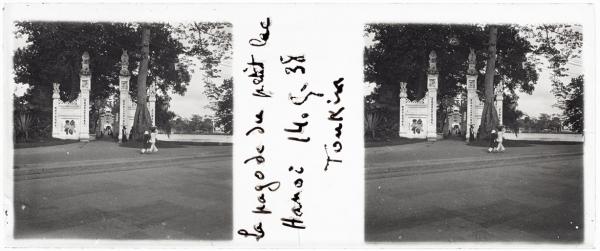 La pagode du petit lac
Hanoi 14.9.38
Tonkin